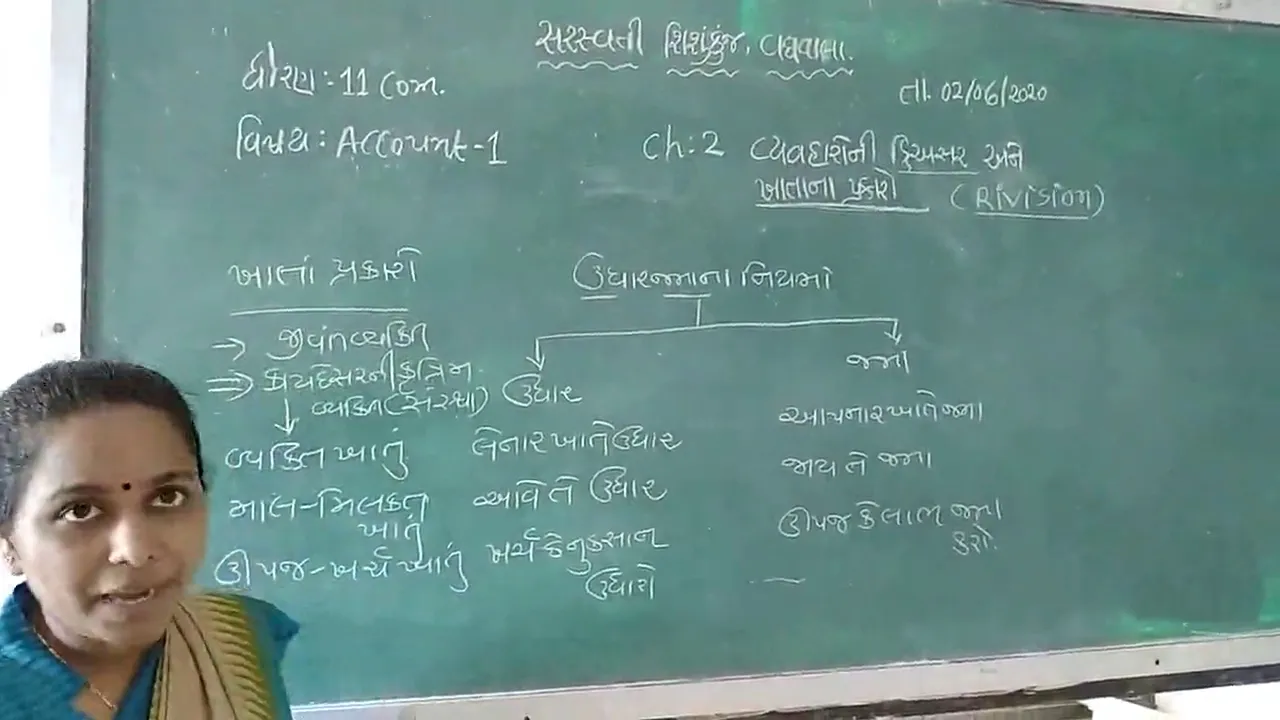 સરસ્વતી શિશુકુંજ, વઘવાલા.
ધોરણ : 11 Com.
તા. 02/06/2020
વિષય : Account-1
Ch: 2 વ્યવહારોની દ્વિઅસર અને
ખાતાના પ્રકારો (Rivision)
ખાતાં પ્રકારો
ઉધારજમાના નિયમો
→ જીવંત વ્યક્તિ
⇒ કાયદેસરની કૃત્રિમ
વ્યક્તિ (સંસ્થા)
ઉધાર
જમા
વ્યક્તિ ખાતું લેનાર ખાતે ઉધાર આપનાર ખાતે જમા
માલ-મિલકત ખાતું આવે તે ઉધાર જાય તે જમા
ઊપજ-ખર્ચ ખાતું ખર્ચ કે નુકસાન ઉધારો ઊપજ કે લાભ જમા કરો.